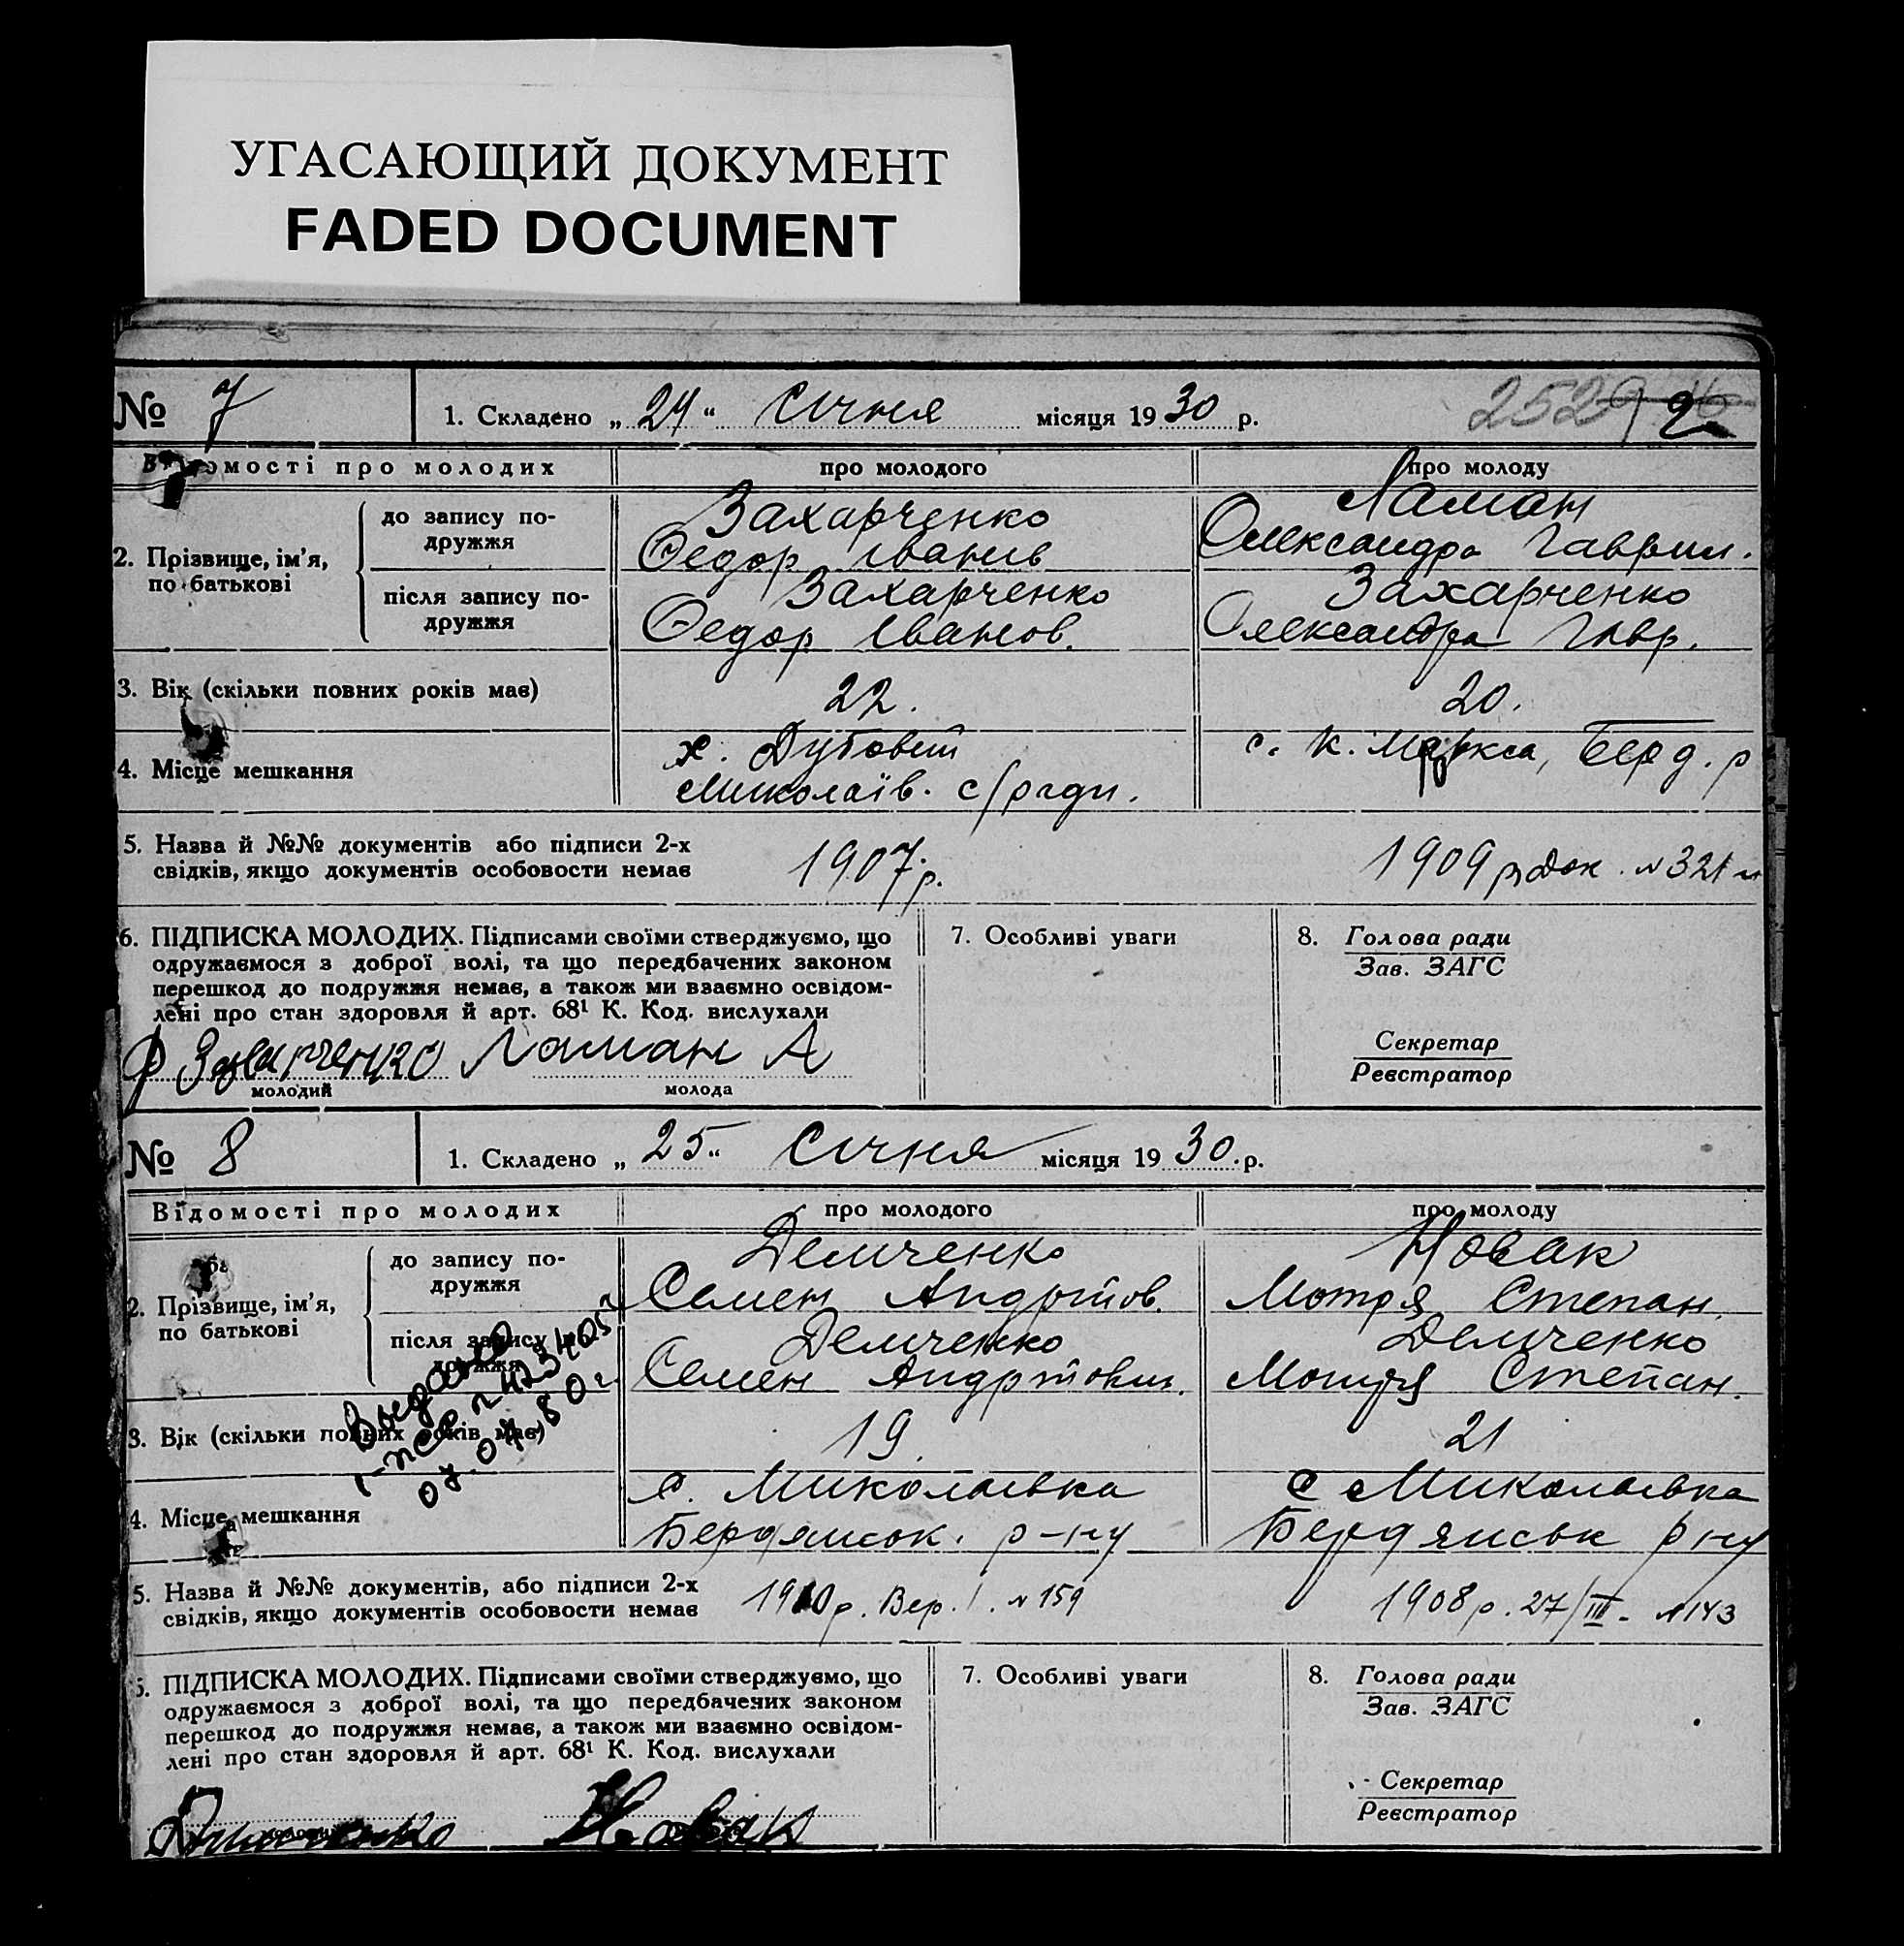 УГАСАЮЩИЙ ДОКУМЕНТ
FADED DOCUMENT
№ 7
1. Складено „ 24 “ Січня місяця 1930 р.
2529
Відомості про молодих
про молодого
про молоду
2. Прізвище, ім’я,
по батькові
до запису по-
дружжя
Захарченко
Федор Іванів
Ламан
Олександра Гаврил.
після запису по-
дружжя
Захарченко
Федор Іванов.
Захарченко
Олександра Гавр.
3. Вік (скільки повних років має)
22.
20.
4. Місце мешкання
х. Дубовий
Миколаїв. с/ради.
с. К. Маркса, Берд. р
5. Назва й №№ документів або підписи 2-х
свідків, якщо документів особовости немає
1907 р.
1909 р Док. № 321
6. ПІДПИСКА МОЛОДИХ. Підписами своїми стверджуємо, що
одружаємося з доброї волі, та що передбачених законом
перешкод до подружжя немає, а також ми взаємно освідом-
лені про стан здоровля й арт. 68¹ К. Код. вислухали
Ф Захарченко
молодий
Ламан А
молода
7. Особливі уваги
8. Голова ради
Зав. ЗАГС
Секретар
Реєстратор
№ 8
1. Складено „ 25 “ Січня місяця 1930 р.
Відомості про молодих
про молодого
про молоду
2. Прізвище, ім’я,
по батькові
до запису по-
дружжя
Демченко
Семен Андріїов.
Новак
Мотря Степан.
після запису по-
дружжя
Демченко
Семен Андріїович.
Демченко
Мотря Степан.
Выдано
3. Вік (скільки повних років має)
19.
21
4. Місце мешкання
с. Миколаївка
Бердянськ. р-ну
с Миколаївка
Бердянськ р ну
5. Назва й №№ документів, або підписи 2-х
свідків, якщо документів особовости немає
1910 р. Вер. 1. № 159
1908 р. 27/III. № 143
6. ПІДПИСКА МОЛОДИХ. Підписами своїми стверджуємо, що
одружаємося з доброї волі, та що передбачених законом
перешкод до подружжя немає, а також ми взаємно освідом-
лені про стан здоровля й арт. 68¹ К. Код. вислухали
Новак
7. Особливі уваги
8. Голова ради
Зав. ЗАГС
Секретар
Реєстратор